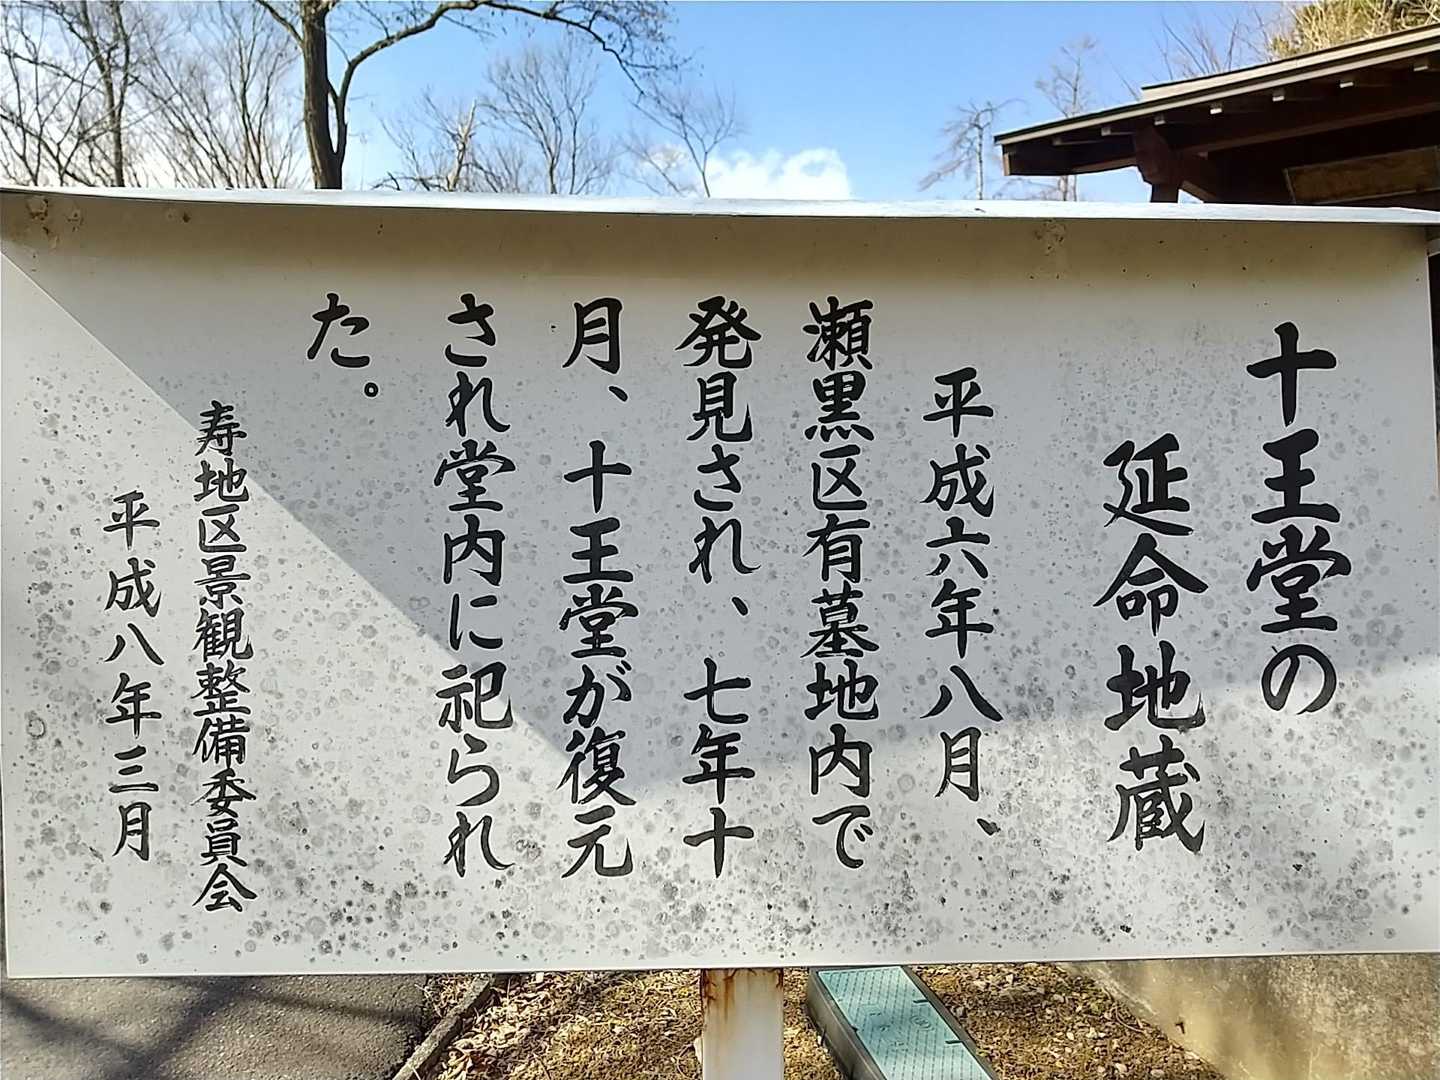 十王堂の
延命地蔵
平成六年八月、
瀬黒区有墓地内で
発見され、七年十
月、十王堂が復元
され堂内に祀られ
た。
寿地区景観整備委員会
平成八年三月